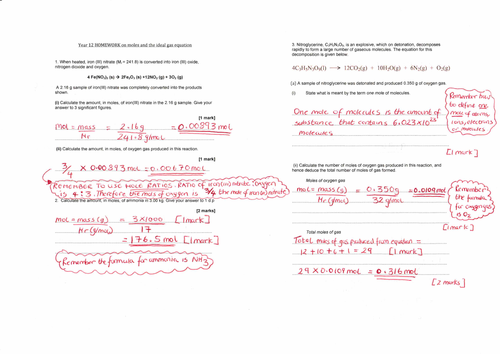 Year 12 HOMEWORK on moles and the ideal gas equation
1. When heated, iron (III) nitrate (Mr = 241.8) is converted into iron (III) oxide,
nitrogen dioxide and oxygen.
4 Fe(NO3)3 (s) → 2Fe2O3 (s) +12NO2 (g) + 3O2 (g)
A 2.16 g sample of iron(III) nitrate was completely converted into the products
shown.
(i) Calculate the amount, in moles, of iron(III) nitrate in the 2.16 g sample. Give your
answer to 3 significant figures.
[1 mark]
Mol = mass / Mr = 2.16g / 241.8 g/mol = 0.00893 mol
(ii) Calculate the amount, in moles, of oxygen gas produced in this reaction.
[1 mark]
3/4 × 0.00893 mol = 0.00670 mol
REMEMBER TO USE MOLE RATIOS. RATIO OF iron(III) nitrate : oxygen
is 4:3. Therefore the mols of oxygen is 3/4 the mols of iron(III) nitrate
2. Calculate the amount, in moles, of ammonia in 3.00 kg. Give your answer to 1 d.p
[2 marks]
mol = mass (g) / Mr (g/mol) = 3×1000 / 17 [1 mark]
= 176.5 mol [1 mark]
Remember the formula for ammonia is NH3
3. Nitroglycerine, C3H5N3O9, is an explosive, which on detonation, decomposes
rapidly to form a large number of gaseous molecules. The equation for this
decomposition is given below
4C3H5N3O9(l) → 12CO2(g) + 10H2O(g) + 6N2(g) + O2(g)
(a) A sample of nitroglycerine was detonated and produced 0.350 g of oxygen gas.
(i) State what is meant by the term one mole of molecules.
One mole of molecules is the amount of
substance that contains 6.023×10^23
molecules
Remember how
to define one
mole of atoms,
ions, electrons
or molecules
[1 mark]
(ii) Calculate the number of moles of oxygen gas produced in this reaction, and
hence deduce the total number of moles of gas formed.
Moles of oxygen gas
mol = mass (g) / Mr (g/mol) = 0.350g / 32 g/mol = 0.0109 mol
Remember
the formula
for oxygen gas
is O2
[1 mark]
Total moles of gas
Total moles of gas produced from equation =
12 + 10 + 6 + 1 = 29 [1 mark]
29 × 0.0109 mol = 0.316 mol
[2 marks]